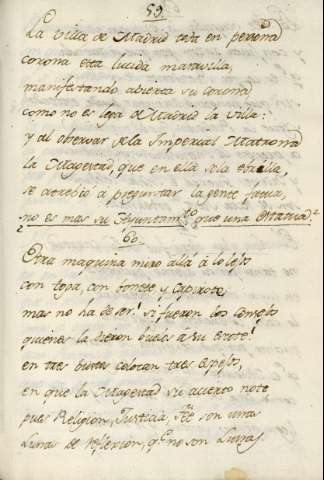 59.
La Villa de Madrid está en persona
corona esta lucida maravilla,
manifestando abierta su corona
como no es sepa de Madrid la Villa:
y al observar de la Imperial Matrona
la Magestad, que en ella sola
se atrevió a preguntar la gente
no es mas su Ayuntamto. que una estatua?
60.
Otra maquina miro allá á lo lejos
con ropa, con bonete, y capirote
mas no ha de ser: si fueron los consejos
quienes la dieron bueles á su
en tres colocan tres espejos,
en que la Magestad su acierto note,
pues Religion, Justicia, Fee son unas
Lunas de reflexion, qe. no son Lunas.